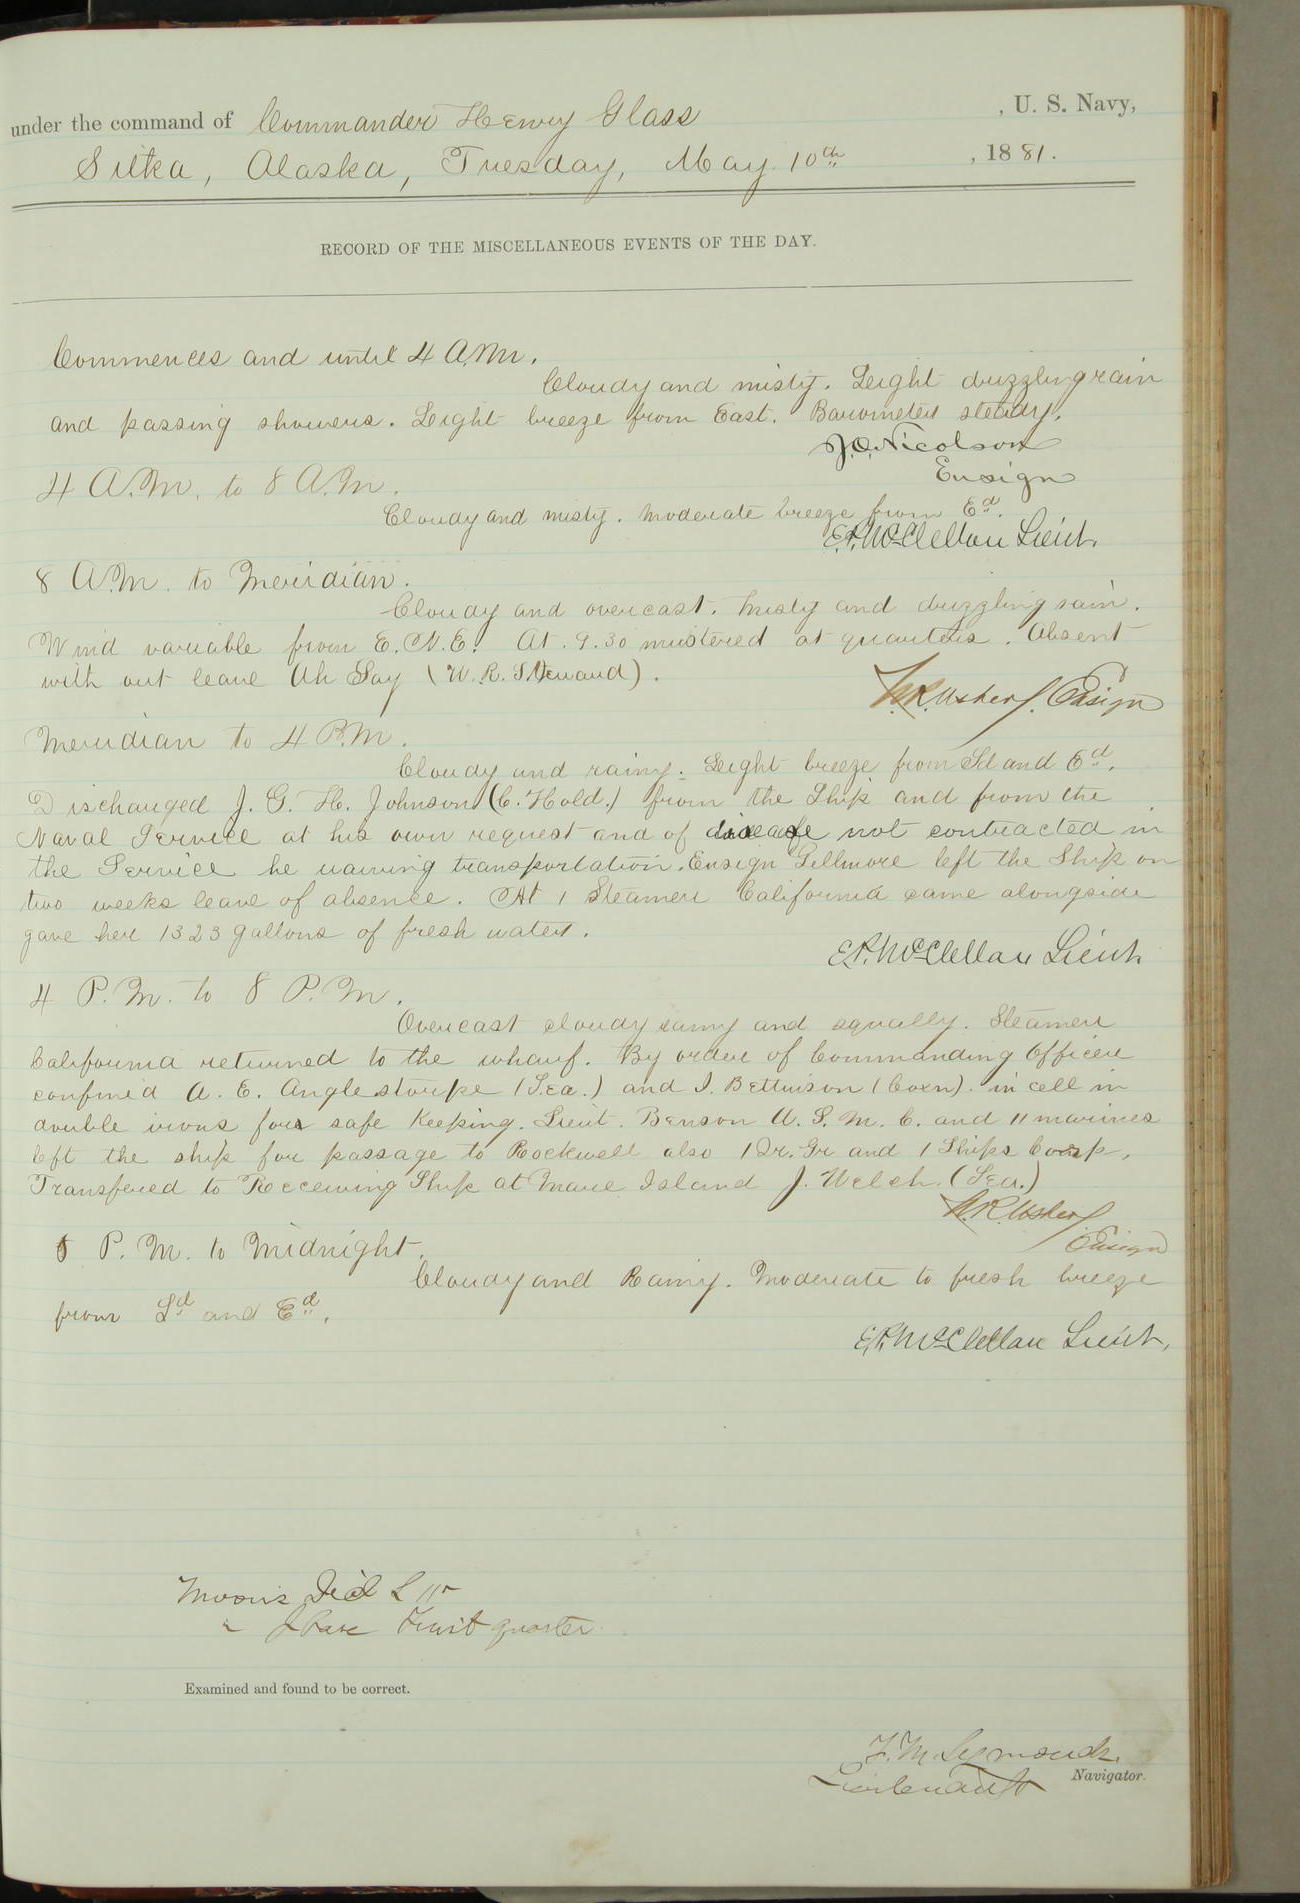 under the command of Commander Henry Glass , U. S. Navy,
Sitka, Alaska, Tuesday, May 10th , 1881.
RECORD OF THE MISCELLANEOUS EVENTS OF THE DAY.
Commences and until 4 A.M.
Cloudy and misty. Light drizzling rain
and passing showers. Light breeze from East. Barometer steady.
J.O. Nicolson
Ensign
4 A.M. to 8 A.M.
Cloudy and misty. Moderate breeze from Ed.
E.P. McClellan Lieut.
8 A.M. to Meridian.
Cloudy and overcast. Misty and drizzling rain.
Wind variable from E.N.E. At 9.30 mustered at quarters. Absent
with out leave Ah Say (W. R. Steward).
N.R. Usher Ensign
Meridian to 4 P.M.
Cloudy and rainy. Light breeze from Sd and Ed.
Discharged J. G. H. Johnson (C. Hold.) from the Ship and from the
Naval Service at his own request and of disease not contracted in
the Service he waiving transportation. Ensign Gillmore left the Ship on
two weeks leave of absence. At 1 Steamer California came alongside
gave her 1323 gallons of fresh water.
E.P. McClellan Lieut
4 P.M. to 8 P.M.
Overcast cloudy rainy and squally. Steamer
California returned to the wharf. By order of Commanding Officer
confined A. E. Anglestorpe (Sea.) and I. Bettinson (Coxn). in cell in
double irons for safe keeping. Lieut. Benson U. S. M. C. and 11 marines
left the ship for passage to Rockwell also 1 Qr. Gr and 1 Ships Corp.
Transfered to Receiving Ship at Mare Island J. Welch. (Sea.)
N.R. Usher
Ensign
8 P.M. to Midnight.
Cloudy and Rainy. Moderate to fresh breeze
from Sd and Ed.
E.P. McClellan Lieut.
Moon's
" Phase First quarter
Examined and found to be correct.
F. M. Symonds.
Lieutenant Navigator.